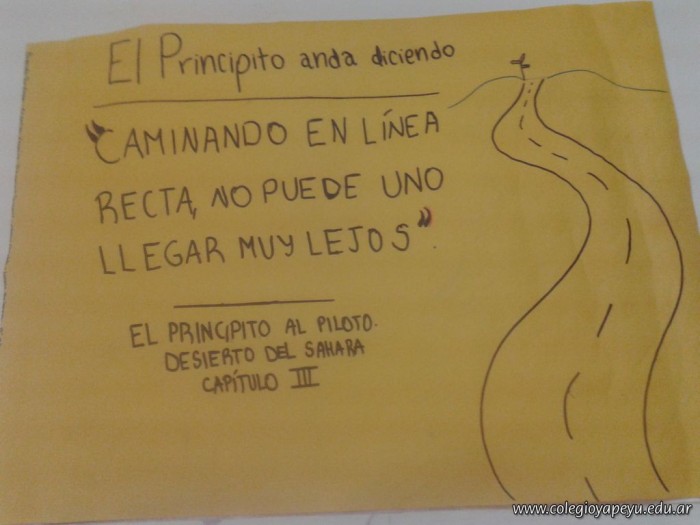 El Principito anda diciendo
"CAMINANDO EN LÍNEA
RECTA, NO PUEDE UNO
LLEGAR MUY LEJOS".
EL PRINCIPITO AL PILOTO.
DESIERTO DEL SAHARA
CAPÍTULO III
www.colegioyapeyu.edu.ar